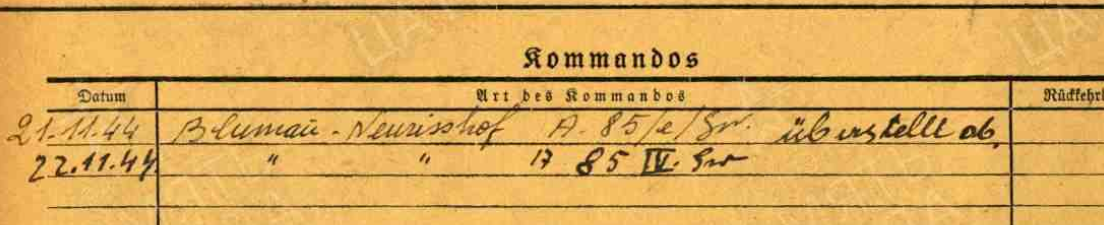 Kommandos
Datum Art des Kommandos Rückkehr
21.11.44 Blumau-Neurisshof A. 85/e/Gw. überstellt ab.
22.11.44. " " 17 85 IV. Gw